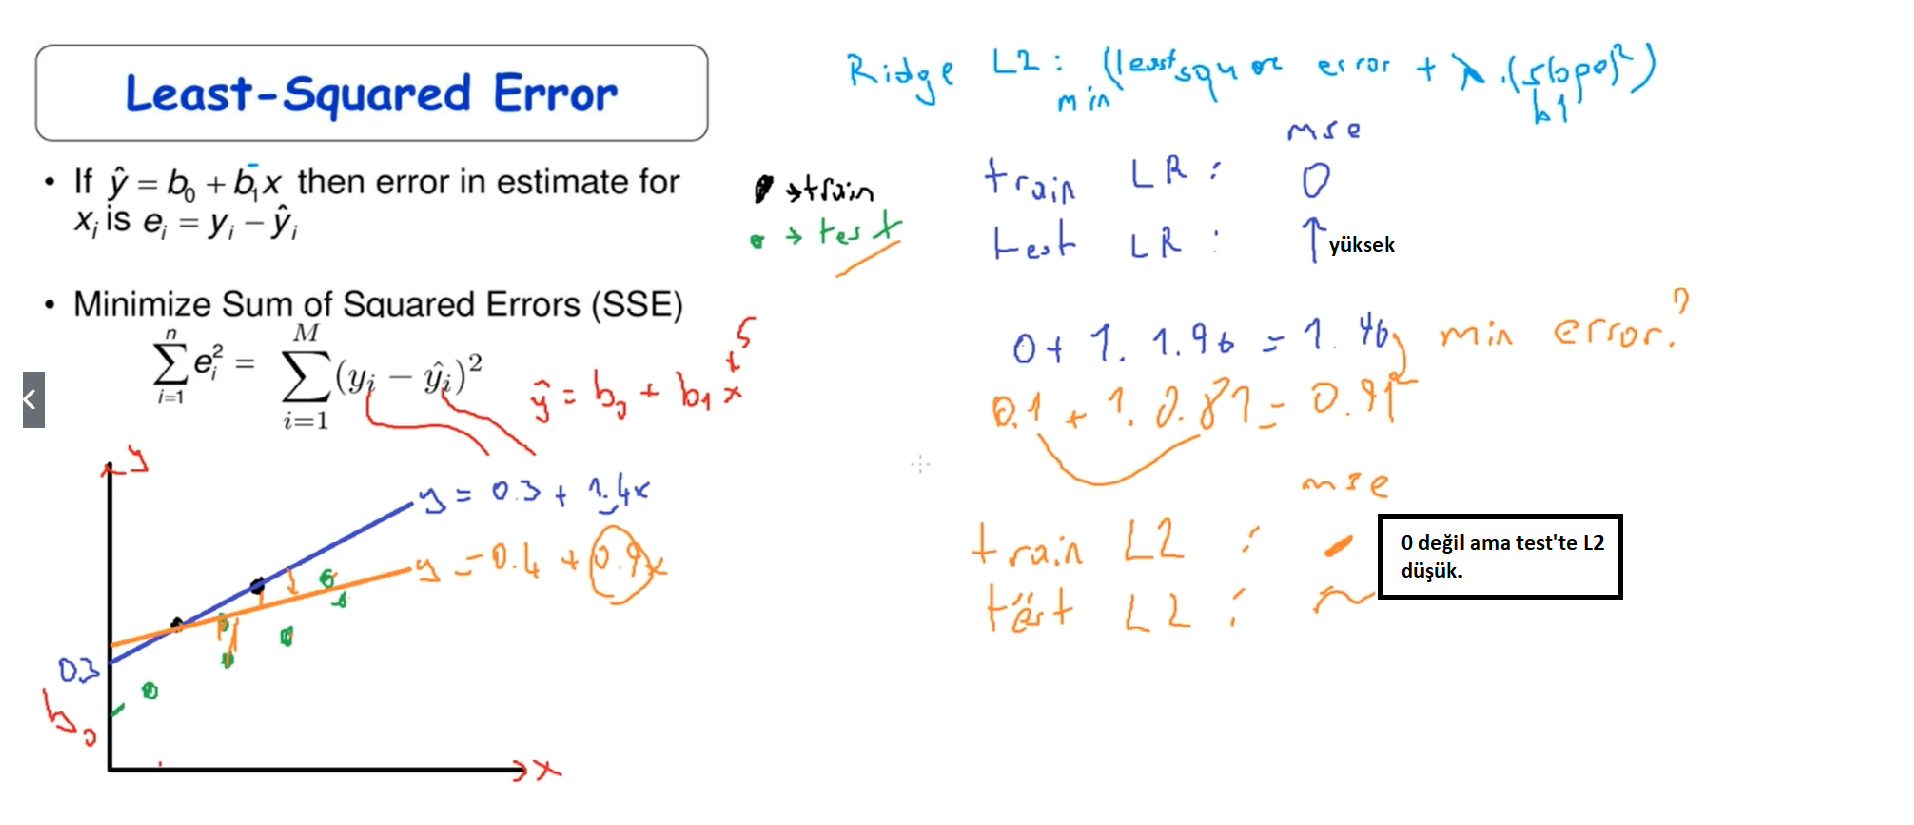 Least-Squared Error
• If ŷ = b₀ + b₁x then error in estimate for
xᵢ is eᵢ = yᵢ − ŷᵢ
• Minimize Sum of Squared Errors (SSE)
n M
∑ eᵢ² = ∑ (yᵢ − ŷᵢ)²
i=1 i=1
ŷ = b₀ + b₁ x
+ 5
y
y = 0.3 + 1.4x
y = 0.4 + 0.9x
0.3
b₀
x
→ train
→ test
Ridge L2: (least square error + λ.(slope)²)
min b1
mse
train LR: 0
test LR: ↑ yüksek
0 + 1. 1.96 = 1.96 min error?
0.1 + 1. 0.81 = 0.91
mse
train L2 :
test L2 :
0 değil ama test'te L2
düşük.